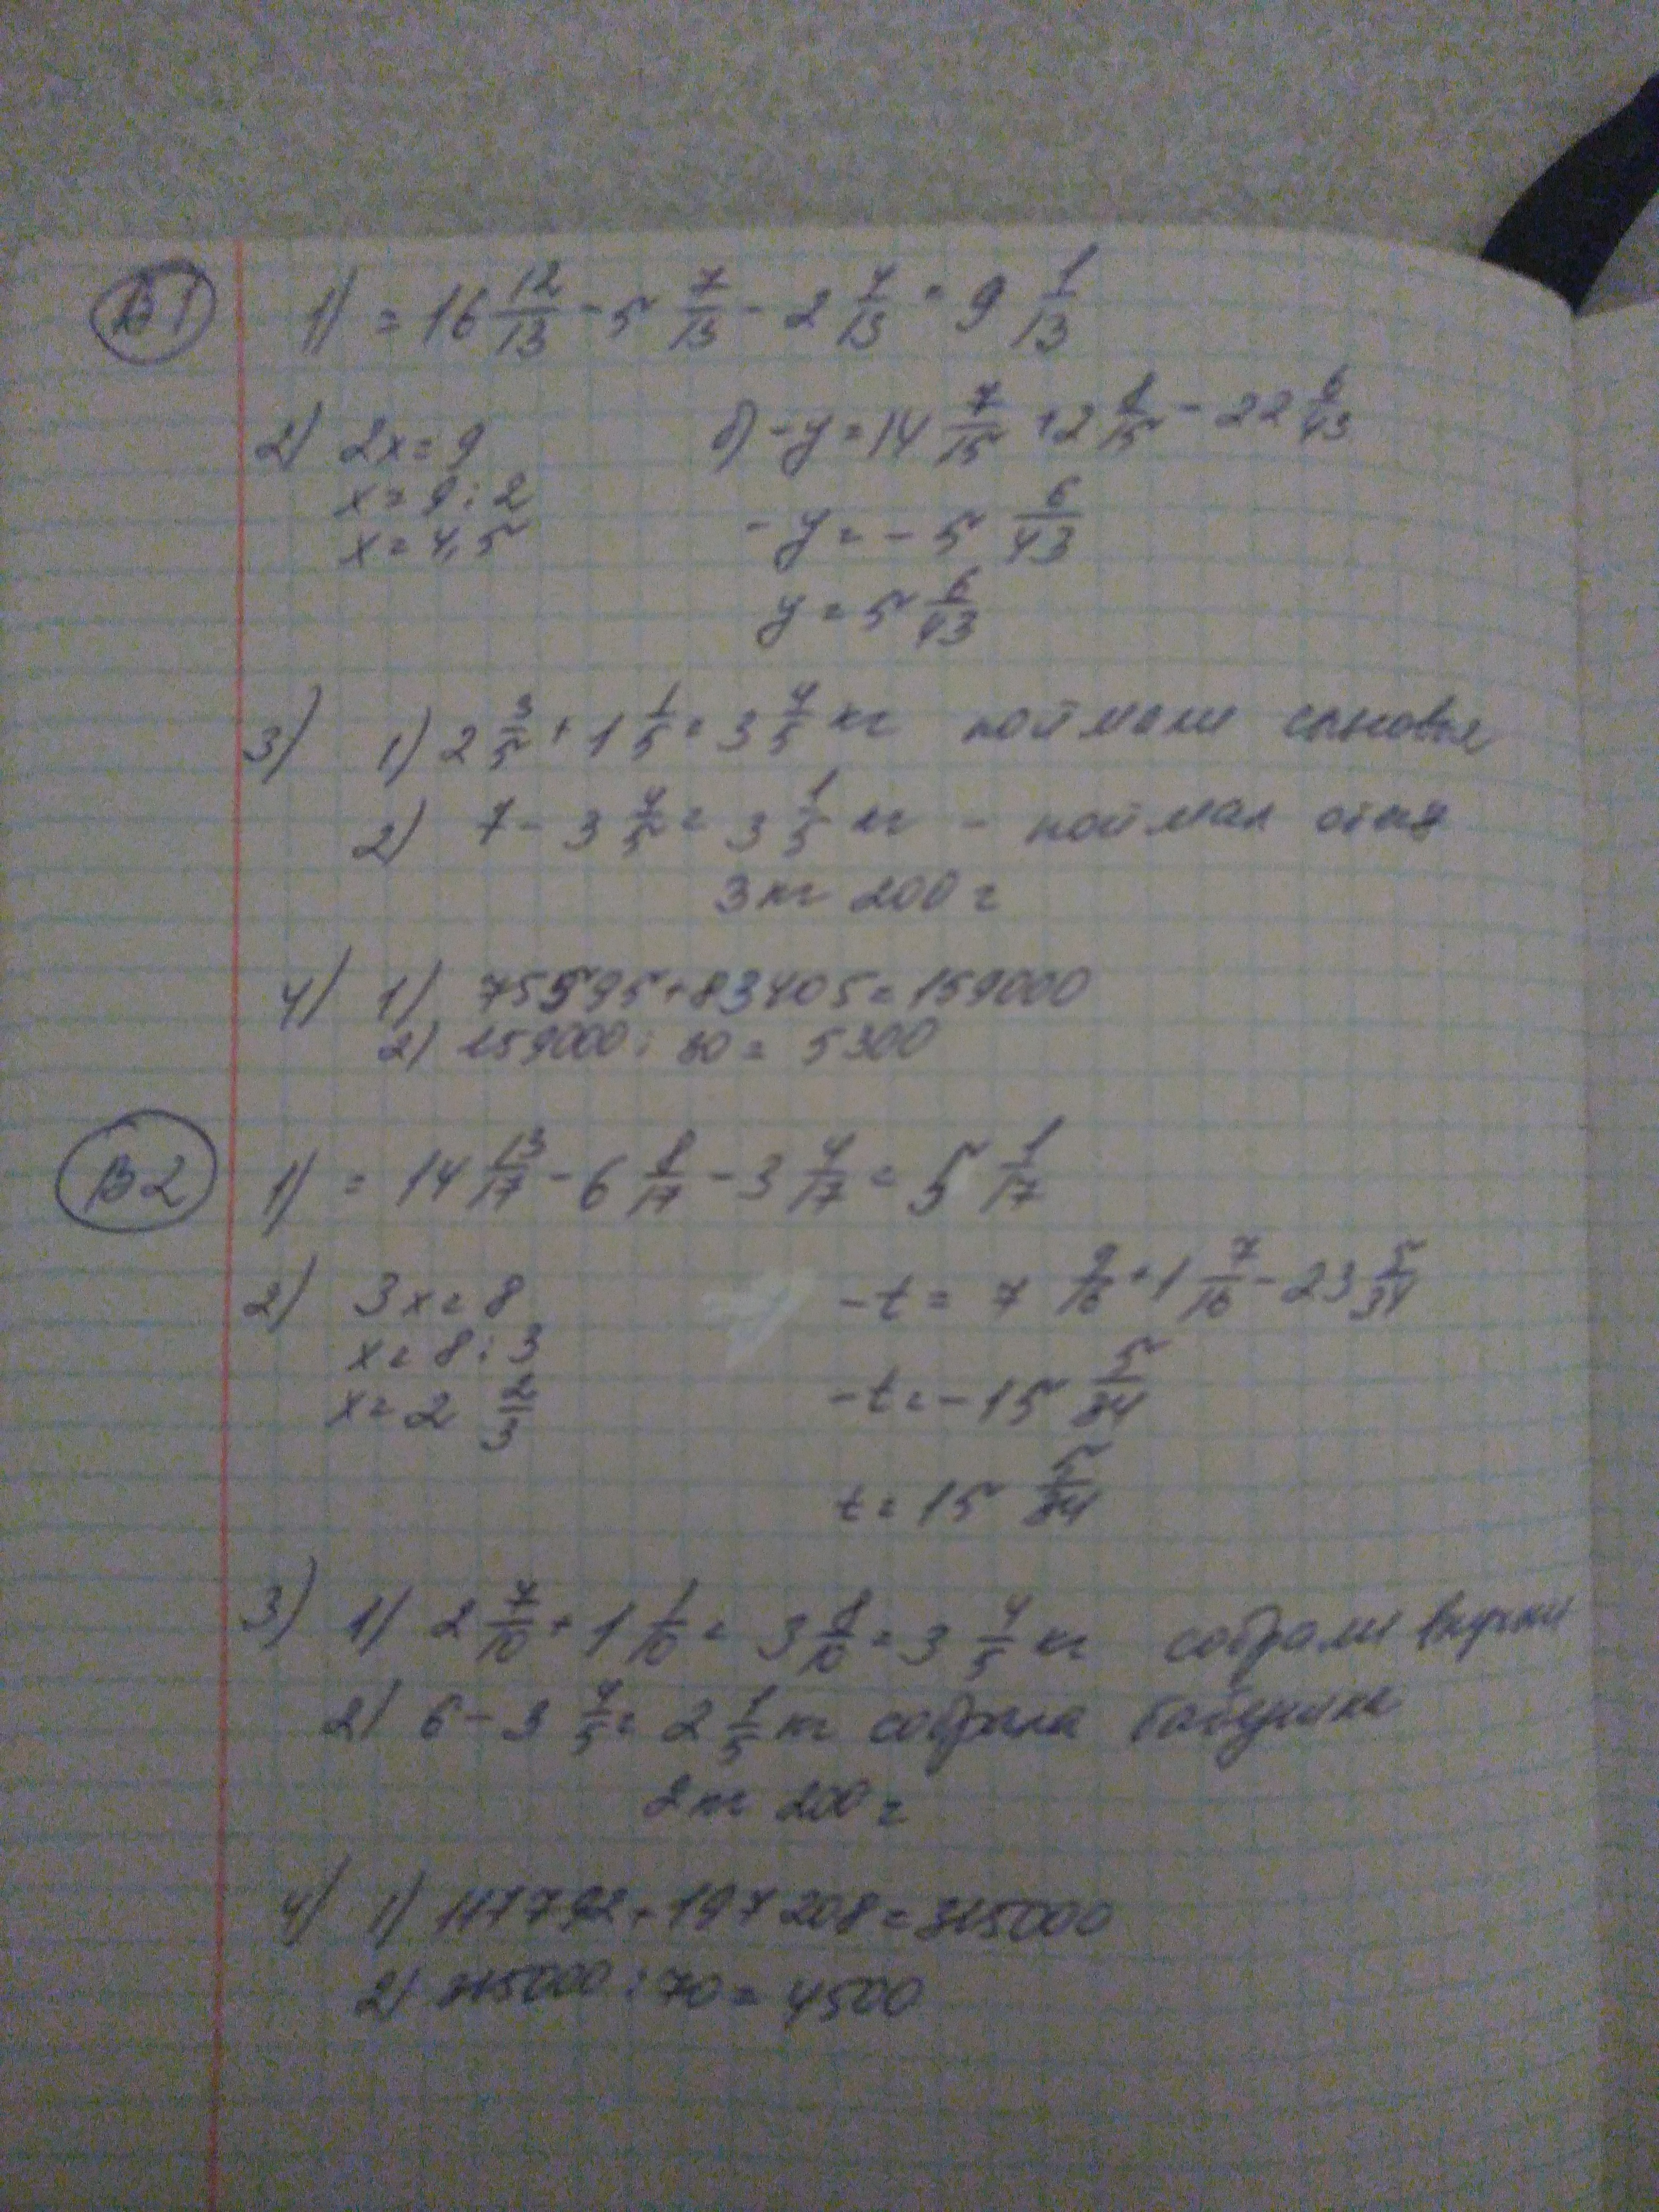 В1 1) = 16 12/13 - 5 7/13 - 2 4/13 = 9 1/13
2) 2x = 9 б) -y = 14 7/15 + 2 8/15 - 22 6/43
x = 9 : 2 -y = -5 6/43
x = 4,5 y = 5 6/43
3) 1) 2 3/5 + 1 1/5 = 3 4/5 кг поймали сыновья
2) 7 - 3 4/5 = 3 1/5 кг - поймал отец
3 кг 200 г
4) 1) 75595 + 83405 = 159000
2) 159000 : 30 = 5300
В2 1) = 14 13/17 - 6 8/17 - 3 4/17 = 5 1/17
2) 3x = 8 -t = 7 9/16 + 1 7/16 - 23 5/84
x = 8 : 3 -t = -15 5/84
x = 2 2/3 t = 15 5/84
3) 1) 2 7/10 + 1 1/10 = 3 8/10 = 3 4/5 кг собрали внучки
2) 6 - 3 4/5 = 2 1/5 кг собрала бабушка
2 кг 200 г
4) 1) 117792 + 197208 = 315000
2) 315000 : 70 = 4500